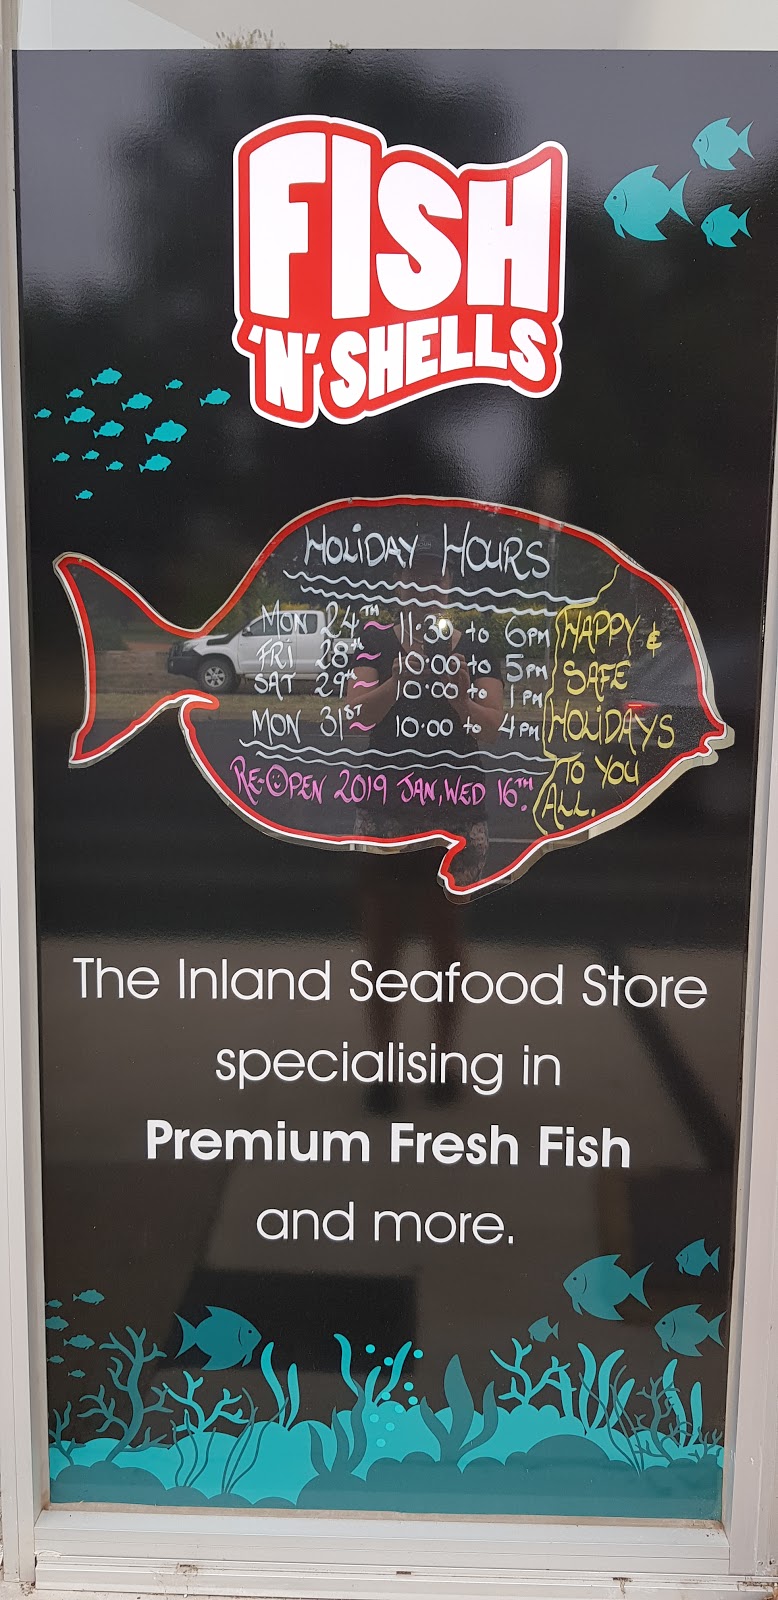 FISH
'N' SHELLS
HOLIDAY HOURS
MON 24TH ~ 11.30 to 6PM
FRI 28th ~ 10.00 to 5PM
SAT 29th ~ 10.00 to 1PM
MON 31ST ~ 10.00 to 4PM
RE-OPEN 2019 JAN, WED 16TH.
HAPPY &
SAFE
HOLIDAYS
TO YOU
ALL.
The Inland Seafood Store
specialising in
Premium Fresh Fish
and more.